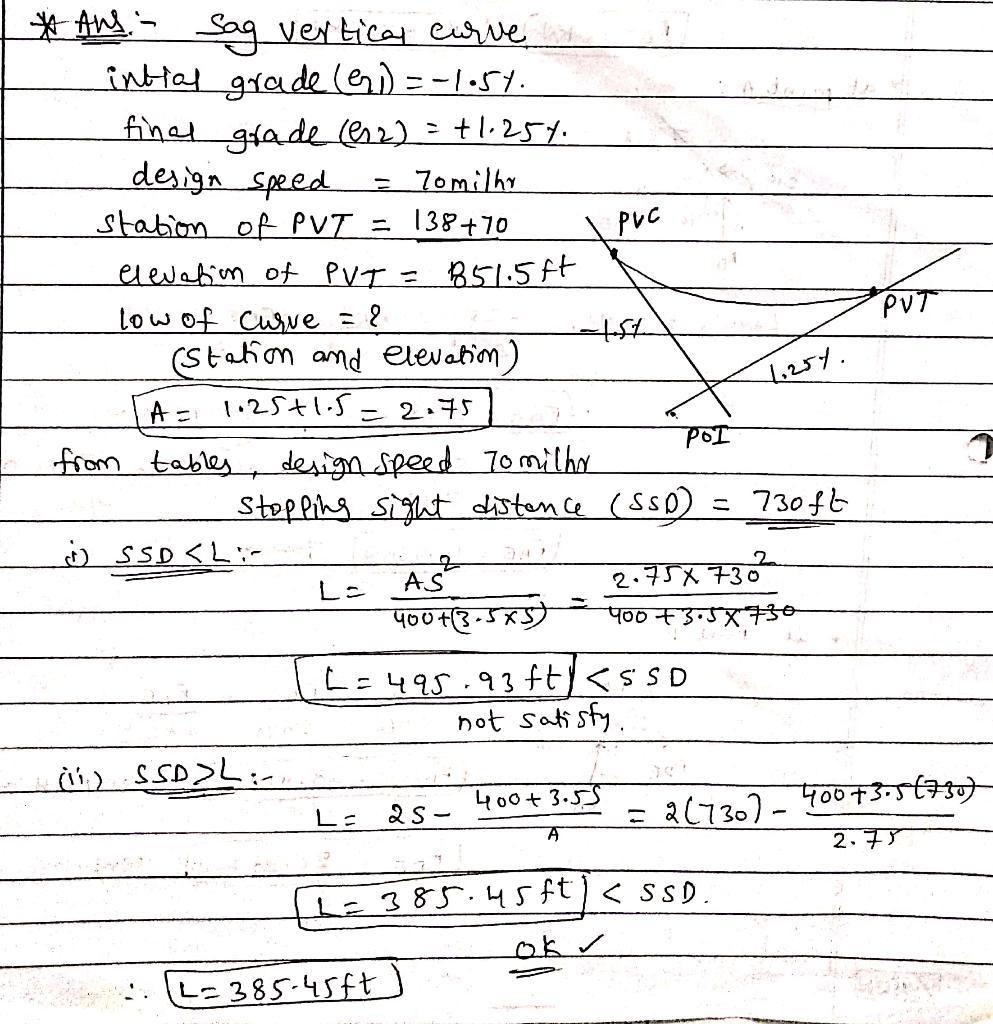 * Ans.:- Sag vertical curve
intial grade (G1) = -1.5%.
final grade (G2) = +1.25%.
design speed = 70mi/hr
station of PVT = 138+70
elevation of PVT = 851.5ft
low of curve = ?
(Station and elevation)
PVC
PVT
-1.5%
1.25%.
POI
A = 1.25+1.5 = 2.75
from tables, design speed 70mi/hr
stopping sight distance (SSD) = 730ft
i) SSD < L :-
L = AS² / 400+(3.5×S) = 2.75×730² / 400+3.5×730
L = 495.93 ft < SSD
not satisfy.
(ii) SSD > L :-
L = 2S - 400+3.5S / A = 2(730) - 400+3.5(730) / 2.75
L = 385.45ft < SSD.
OK ✓
∴ L = 385.45ft